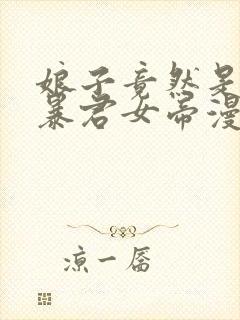 娘子竟然是
暴君女帝漫
凉一厬